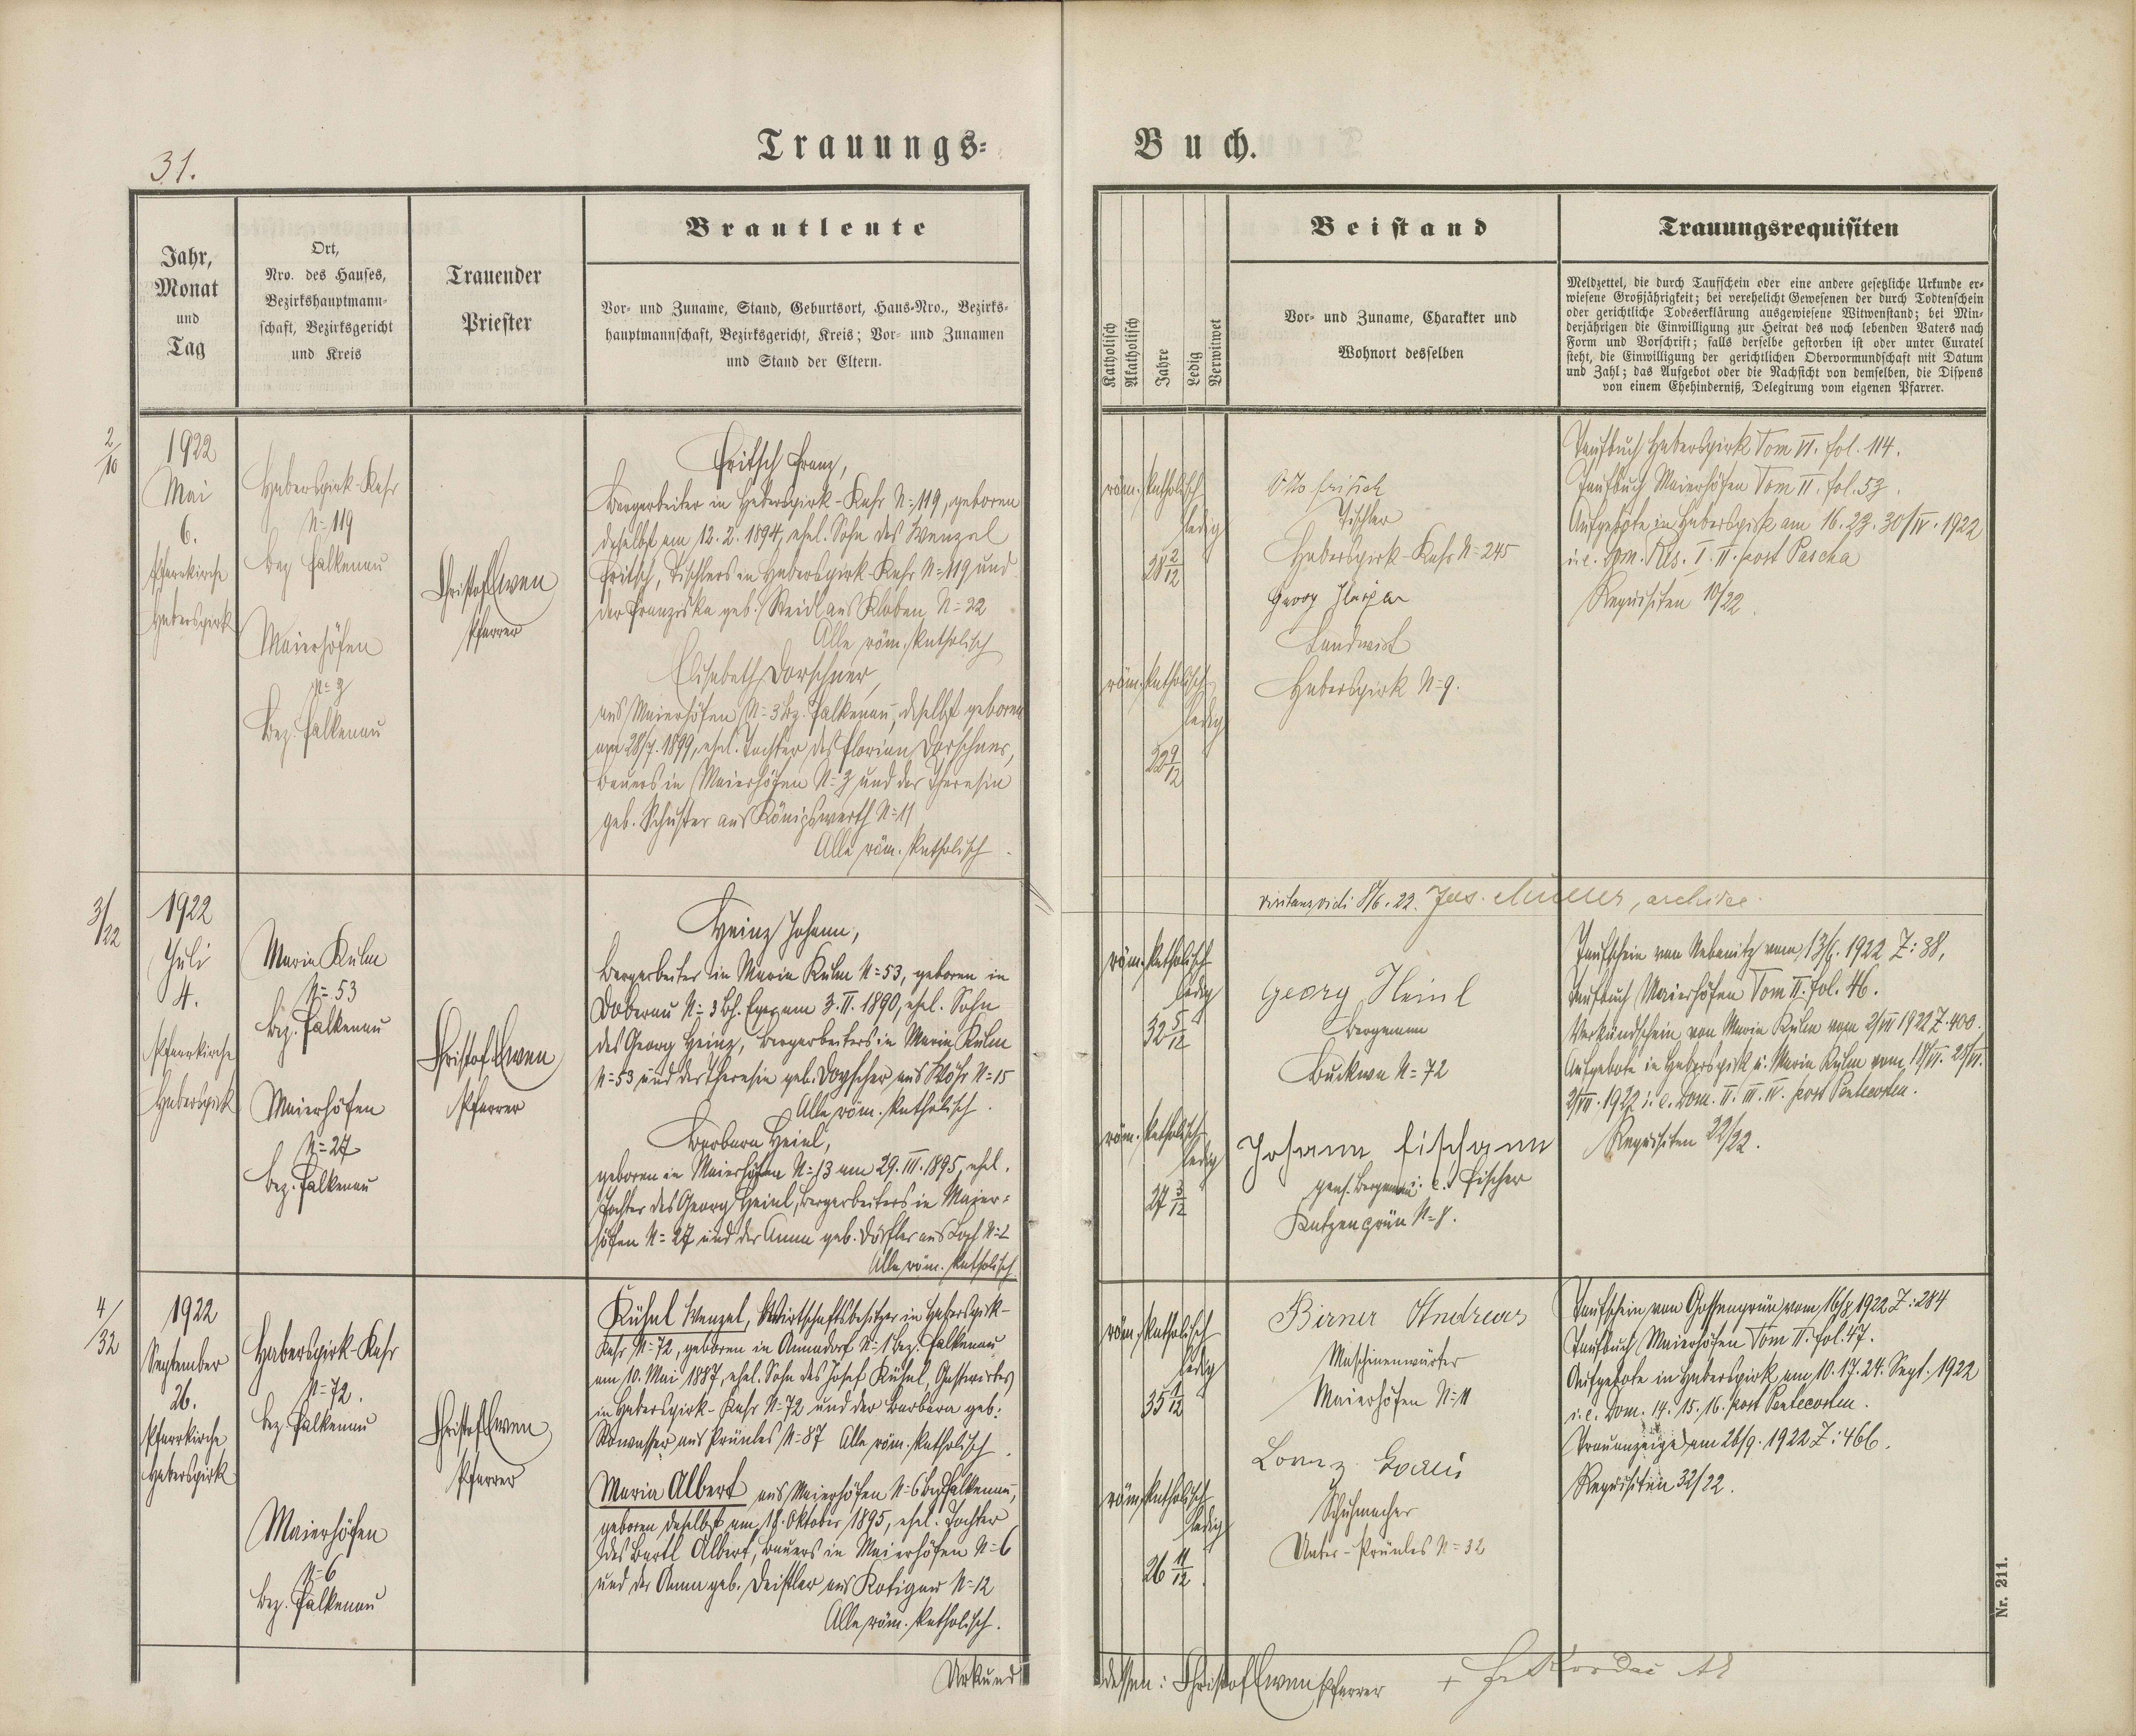 31.
Trauungs-
Buch.
Jahr,
Monat
und
Tag
Ort,
Nro. des Hauses,
Bezirkshauptmann-
schaft, Bezirksgericht
und Kreis
Trauender
Priester
Brautleute
Vor- und Zuname, Stand, Geburtsort, Haus-Nro., Bezirks-
hauptmannschaft, Bezirksgericht, Kreis; Vor- und Zunamen
und Stand der Eltern.
Katholisch
Akatholisch
Jahre
Ledig
Verwitwet
Beistand
Vor- und Zuname, Charakter und
Wohnort desselben
Trauungsrequisiten
Meldzettel, die durch Taufschein oder eine andere gesetzliche Urkunde er-
wiesene Großjährigkeit; bei verehelicht Gewesenen der durch Todtenschein
oder gerichtliche Todeserklärung ausgewiesene Witwenstand; bei Min-
derjährigen die Einwilligung zur Heirat des noch lebenden Vaters nach
Form und Vorschrift; falls derselbe gestorben ist oder unter Curatel
steht, die Einwilligung der gerichtlichen Obervormundschaft mit Datum
und Zahl; das Aufgebot oder die Nachsicht von demselben, die Dispens
von einem Ehehinderniß, Delegirung vom eigenen Pfarrer.
2/10
1922
Mai
6.
Pfarrkirche
Haberspirk
Haberspirk-Kahr
N=119
Bez Falkenau
Maierhöfen
N=3
Bez. Falkenau
Christof Lwen
Pfarrer
Fritsch Franz,
Bergarbeiter in Haberspirk-Kahr N=119, geboren
daselbst am 12.2.1894, ehel. Sohn des Wenzel
Fritsch, Tischlers in Haberspirk-Kahr N=119 und
der Franziska geb. Reidl aus Kloben N=22
Alle röm. katholisch
Elisabeth Dorschner,
aus Maierhöfen N=3 Bz. Falkenau, daselbst geboren
am 28/7. 1899, ehel. Tochter des Florian Dorschner,
Bauers in Maierhöfen N=3 und der Theresia
geb. Schuster aus Königswerth N=11
Alle röm. katholisch.
röm. katholisch
ledig
28 2/12
röm. katholisch
ledig
22 9/12
Otto Fritsch
Tischler
Haberspirk-Kahr N=245
Georg
Landwirt
Haberspirk N=9.
Taufbuch Haberspirk Tom VI. fol. 114.
Taufbuch Maierhöfen Tom II. fol. 53.
Aufgebote in Haberspirk am 16. 23. 30/IV. 1922
i.e. Dom. Res. I. II. post Pascha
Requisiten 10/22.
visitans vidi 8/6. 22. Jos. Müller,
3/22
1922
Juli
4.
Pfarrkirche
Haberspirk
Maria Kulm
N=53
Bz. Falkenau
Maierhöfen
N=27
Bez. Falkenau
Christof Lwen
Pfarrer
Heinz Johann,
Bergarbeiter in Maria Kulm N=53, geboren in
Doberau N=3 Bh. Eger am 3.II.1890, ehel. Sohn
des Georg Heinz, Bergarbeiters in Maria Kulm
N=53 und der Theresia geb. aus N=15
Alle röm. katholisch.
Barbara Heinl,
geboren in Maierhöfen N=13 am 29.III.1895, ehel.
Tochter des Georg Heinl, Bergarbeiters in Maier-
höfen N=27 und der Anna geb. Dörfler aus
Alle röm. katholisch
röm. katholisch
ledig
32 5/12
röm. katholisch
ledig
27 3/12
Georg Heinl
Bergmann
Buckwa N=72
Johann Fischann
pens. Bergmann i.e. Fischer
Katzengrün N=8.
Taufschein von Nebanitz vom 13/6. 1922 Z: 38,
Taufbuch Maierhöfen Tom II. fol. 46.
Verkündschein von Maria Kulm vom 2/VII 1922 Z. 400.
Aufgebote in Haberspirk u. Maria Kulm vom 18/VI. 25/VI.
2/VII. 1922 i.e. Dom. II. III. IV. post Pentecosten.
Requisiten 22/22.
4/32
1922
September
26.
Pfarrkirche
Haberspirk
Haberspirk-Kahr
N=72.
Bez Falkenau
Maierhöfen
N=6
Bez. Falkenau
Christof Lwen
Pfarrer
Kühnl Wenzel, Wirtschaftsbesitzer in Haberspirk-
Kahr N=72, geboren in Annadorf N=1 Bez. Falkenau
am 10. Mai 1887, ehel. Sohn des Josef Kühnl, Gastwirtes
in Haberspirk-Kahr N=72 und der Barbara geb:
aus Prünles N=87 Alle röm. katholisch.
Maria Albert aus Maierhöfen N=6 Bez Falkenau,
geboren daselbst am 18. Oktober 1895, ehel. Tochter
des Bartl Albert, Bauers in Maierhöfen N=6
und der Anna geb. Deistler aus Kotigau N=12
Alle röm. katholisch.
röm. katholisch
ledig
35 1/12
röm. katholisch
ledig
26 11/12.
Birner Andreas
Maschinenwärter
Maierhöfen N=11
Lorenz
Schuhmacher
Unter-Prünles N=32
Taufschein von Gossengrün vom 16/8 1922 Z: 284
Taufbuch Maierhöfen Tom II. fol. 47.
Aufgebote in Haberspirk am 10. 17. 24. Sept. 1922
i.e. Dom. 14. 15. 16. post Pentecosten.
Trauanzeige am 26/9. 1922 Z: 466.
Requisiten 32/22.
Urkund
dessen: Christof Lwen Pfarrer
Nr. 211.